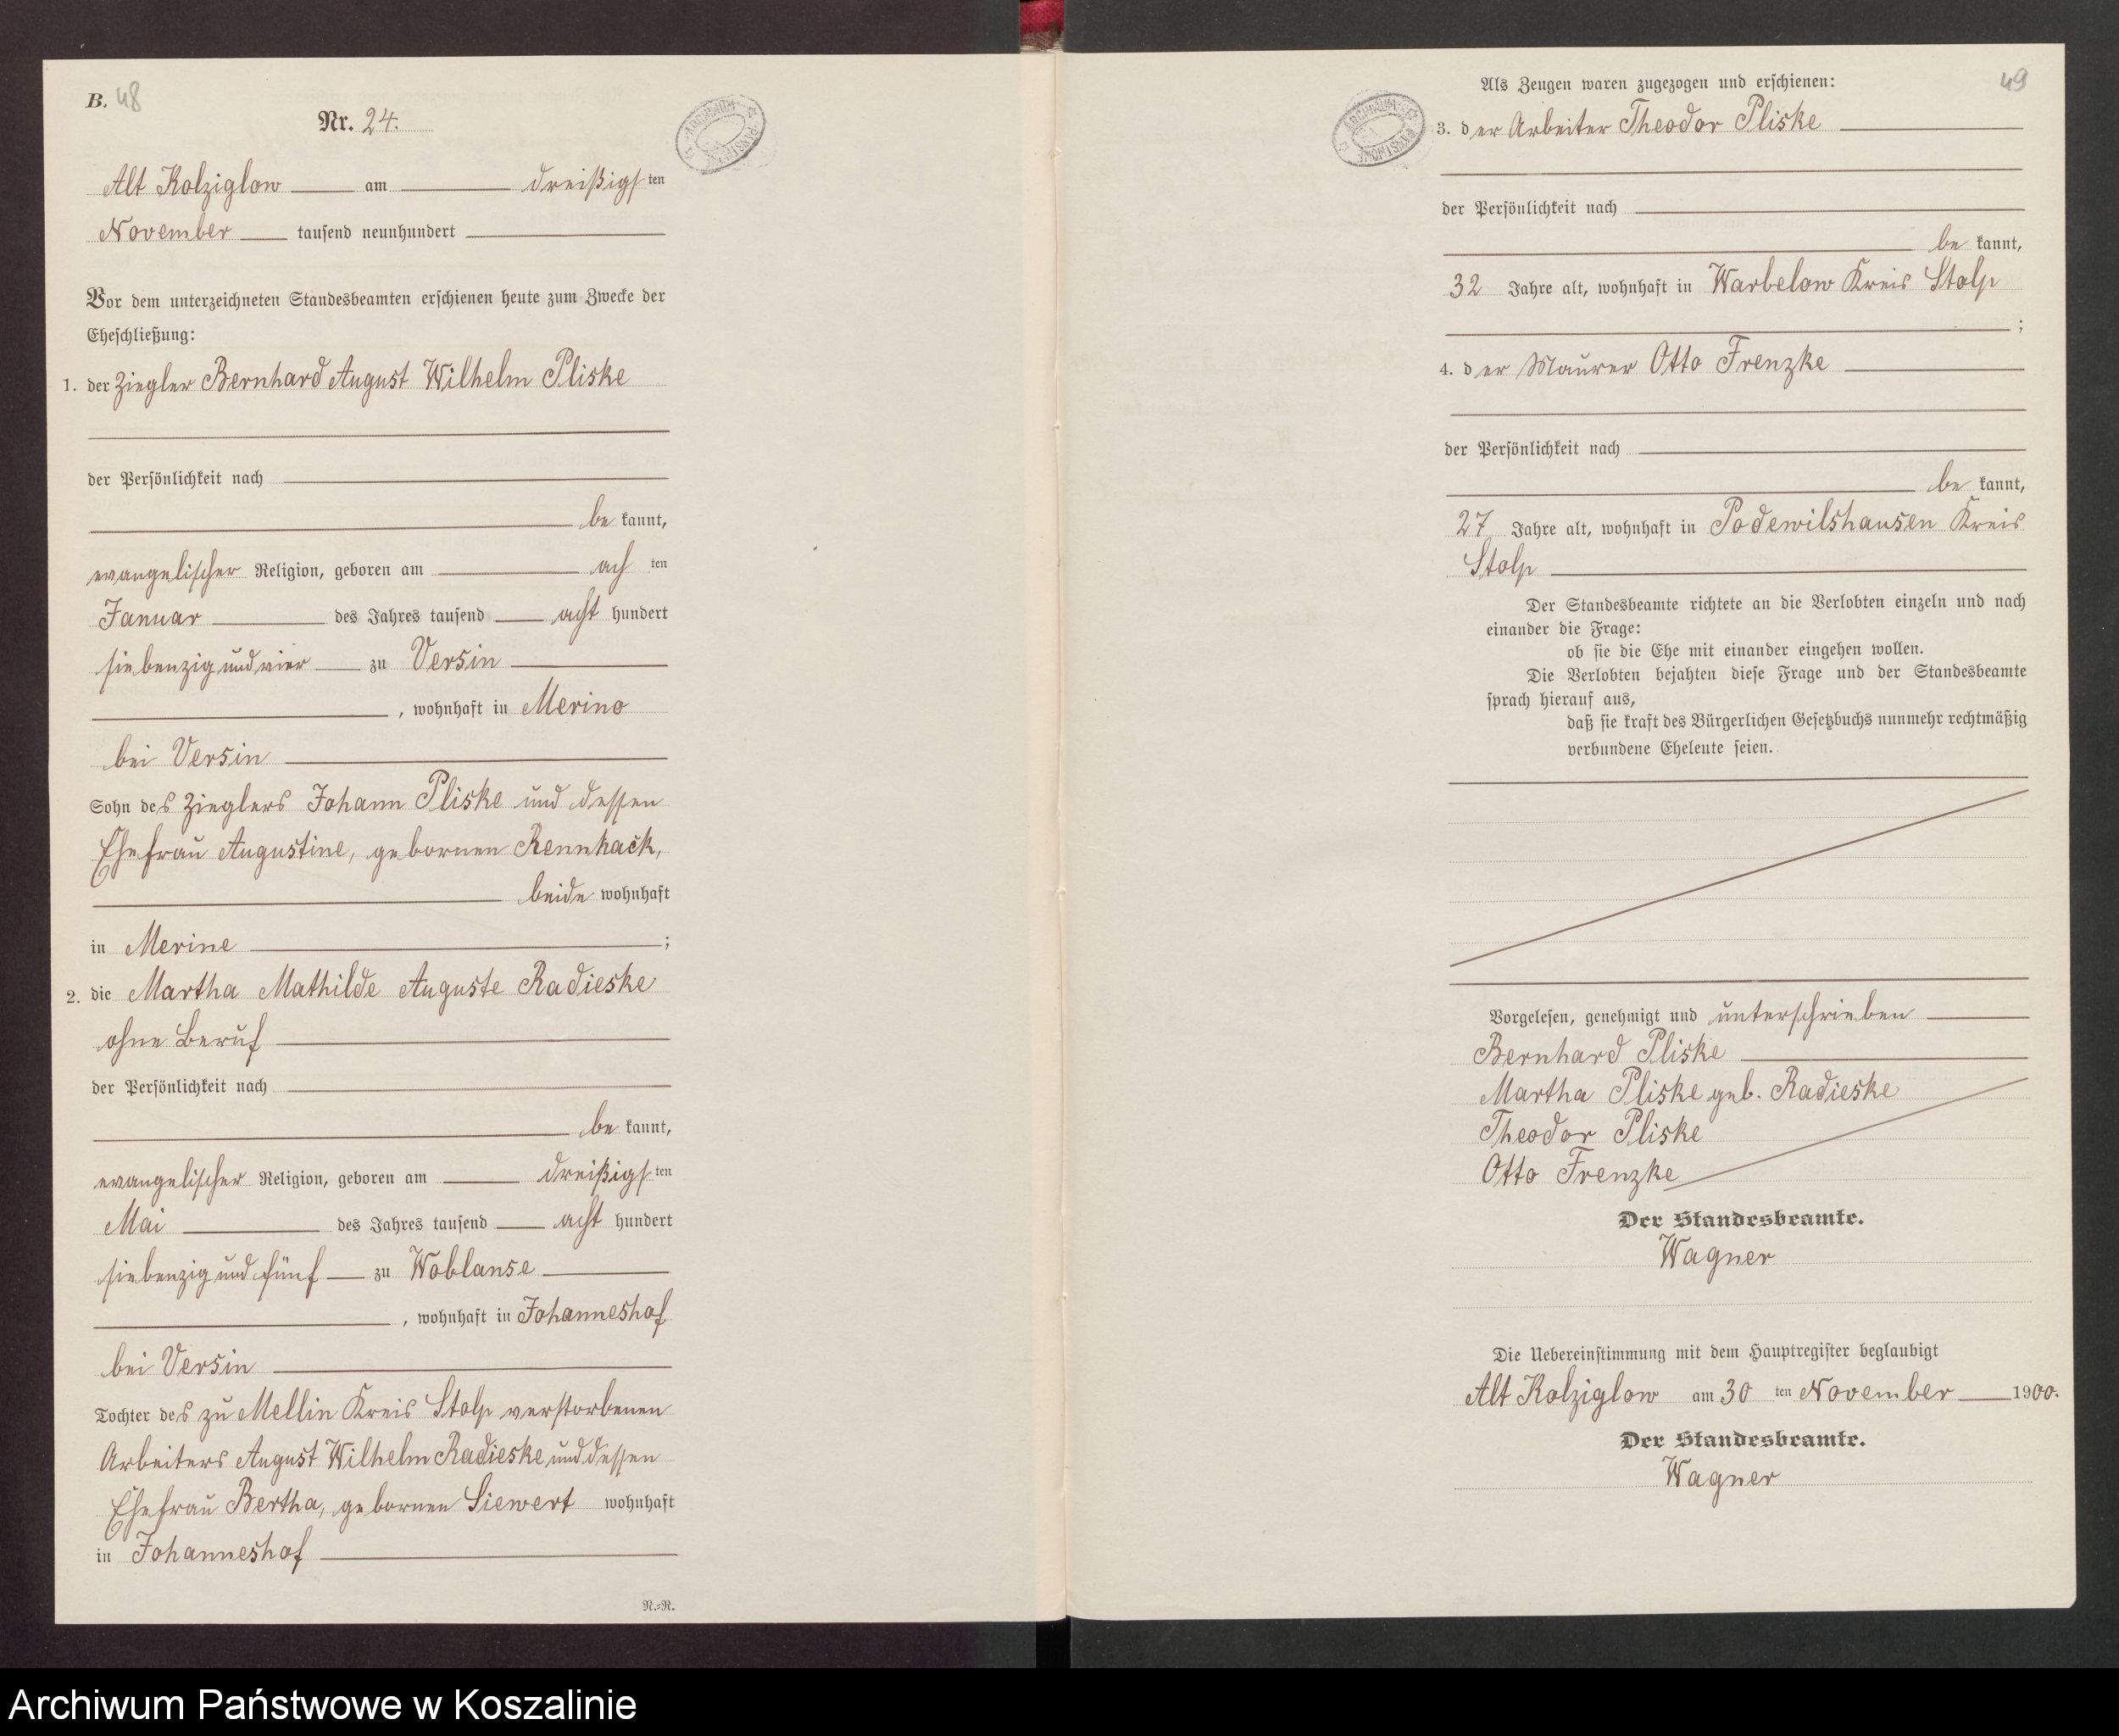 B. 48
Nr. 24.
Alt Kolziglow am dreißigsten
November tausend neunhundert
Vor dem unterzeichneten Standesbeamten erschienen heute zum Zwecke der
Eheschließung:
1. der Ziegler Bernhard August Wilhelm Pliske
der Persönlichkeit nach
be kannt,
evangelischer Religion, geboren am ach ten
Januar des Jahres tausend acht hundert
siebenzig und vier zu Versin
, wohnhaft in Merino
bei Versin
Sohn des Zieglers Johann Pliske und dessen
Ehefrau Augustine, gebornen Rennhack,
beide wohnhaft
in Merine ;
2. die Martha Mathilde Auguste Radieske
ohne Beruf
der Persönlichkeit nach
be kannt,
evangelischer Religion, geboren am dreißigsten
Mai des Jahres tausend acht hundert
siebenzig und fünf zu Woblanse
, wohnhaft in Johanneshof
bei Versin
Tochter des zu Mellin Kreis Stolp verstorbenen
Arbeiters August Wilhelm Radieske und dessen
Ehefrau Bertha, gebornen Siewert wohnhaft
in Johanneshof
N.=N.
49
Als Zeugen waren zugezogen und erschienen:
3. der Arbeiter Theodor Pliske
der Persönlichkeit nach
be kannt,
32 Jahre alt, wohnhaft in Warbelow Kreis Stolp
;
4. der Maurer Otto Frenzke
der Persönlichkeit nach
be kannt,
27 Jahre alt, wohnhaft in Podewilshausen Kreis
Stolp
Der Standesbeamte richtete an die Verlobten einzeln und nach
einander die Frage:
ob sie die Ehe mit einander eingehen wollen.
Die Verlobten bejahten diese Frage und der Standesbeamte
sprach hierauf aus,
daß sie kraft des Bürgerlichen Gesetzbuchs nunmehr rechtmäßig
verbundene Eheleute seien.
Vorgelesen, genehmigt und unterschrieben
Bernhard Pliske
Martha Pliske geb. Radieske
Theodor Pliske
Otto Frenzke
Der Standesbeamte.
Wagner
Die Uebereinstimmung mit dem Hauptregister beglaubigt
Alt Kolziglow am 30 ten November 1900.
Der Standesbeamte.
Wagner
Archiwum Państwowe w Koszalinie